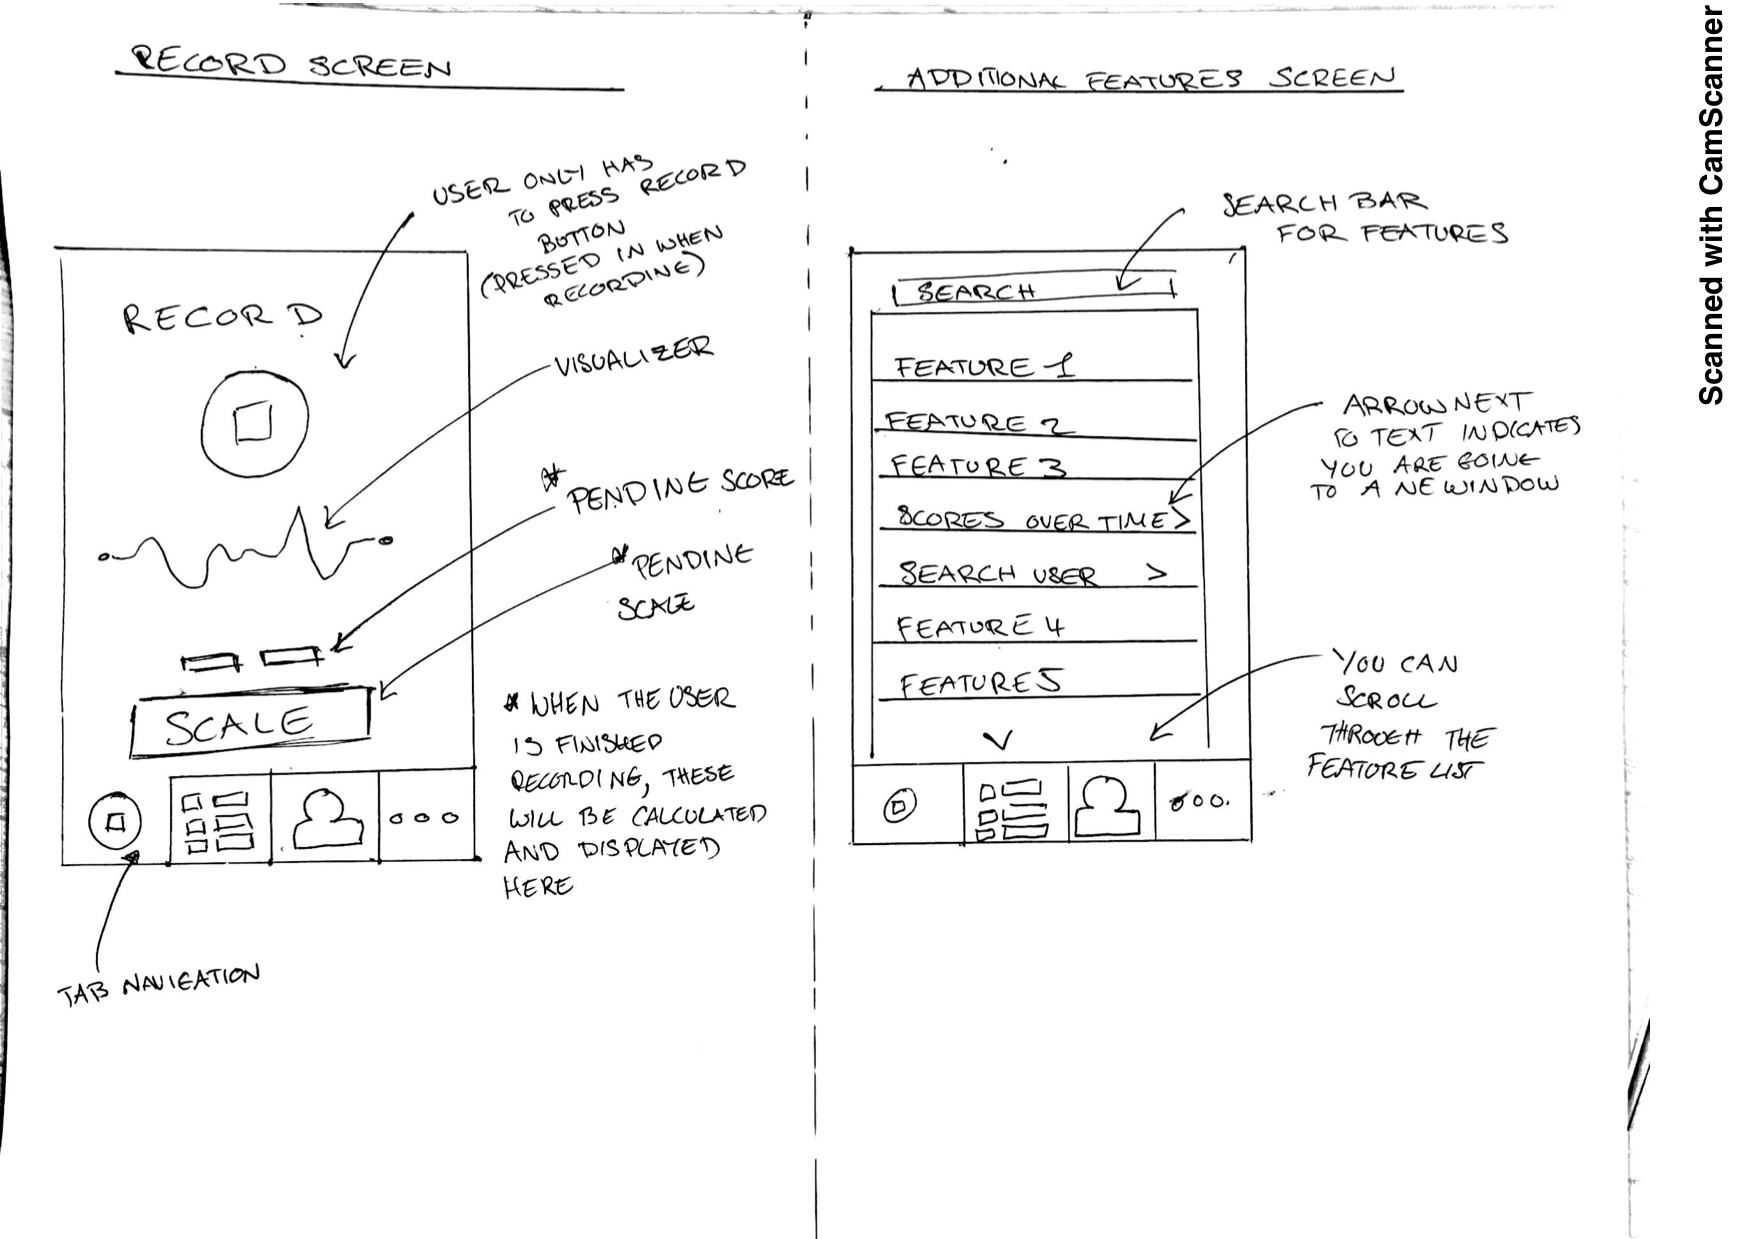 RECORD SCREEN
USER ONLY HAS
TO PRESS RECORD
BUTTON
(PRESSED IN WHEN
RECORDING)
RECORD
VISUALIZER
* PENDING SCORE
* PENDING
SCALE
SCALE
* WHEN THE USER
IS FINISHED
RECORDING, THESE
WILL BE CALCULATED
AND DISPLAYED
HERE
TAB NAVIGATION
ADDITIONAL FEATURES SCREEN
SEARCH BAR
FOR FEATURES
SEARCH
FEATURE 1
FEATURE 2
FEATURE 3
SCORES OVER TIME >
SEARCH USER >
FEATURE 4
FEATURE 5
ARROW NEXT
TO TEXT INDICATES
YOU ARE GOING
TO A NEWINDOW
YOU CAN
SCROLL
THROUGH THE
FEATURE LIST
Scanned with CamScanner